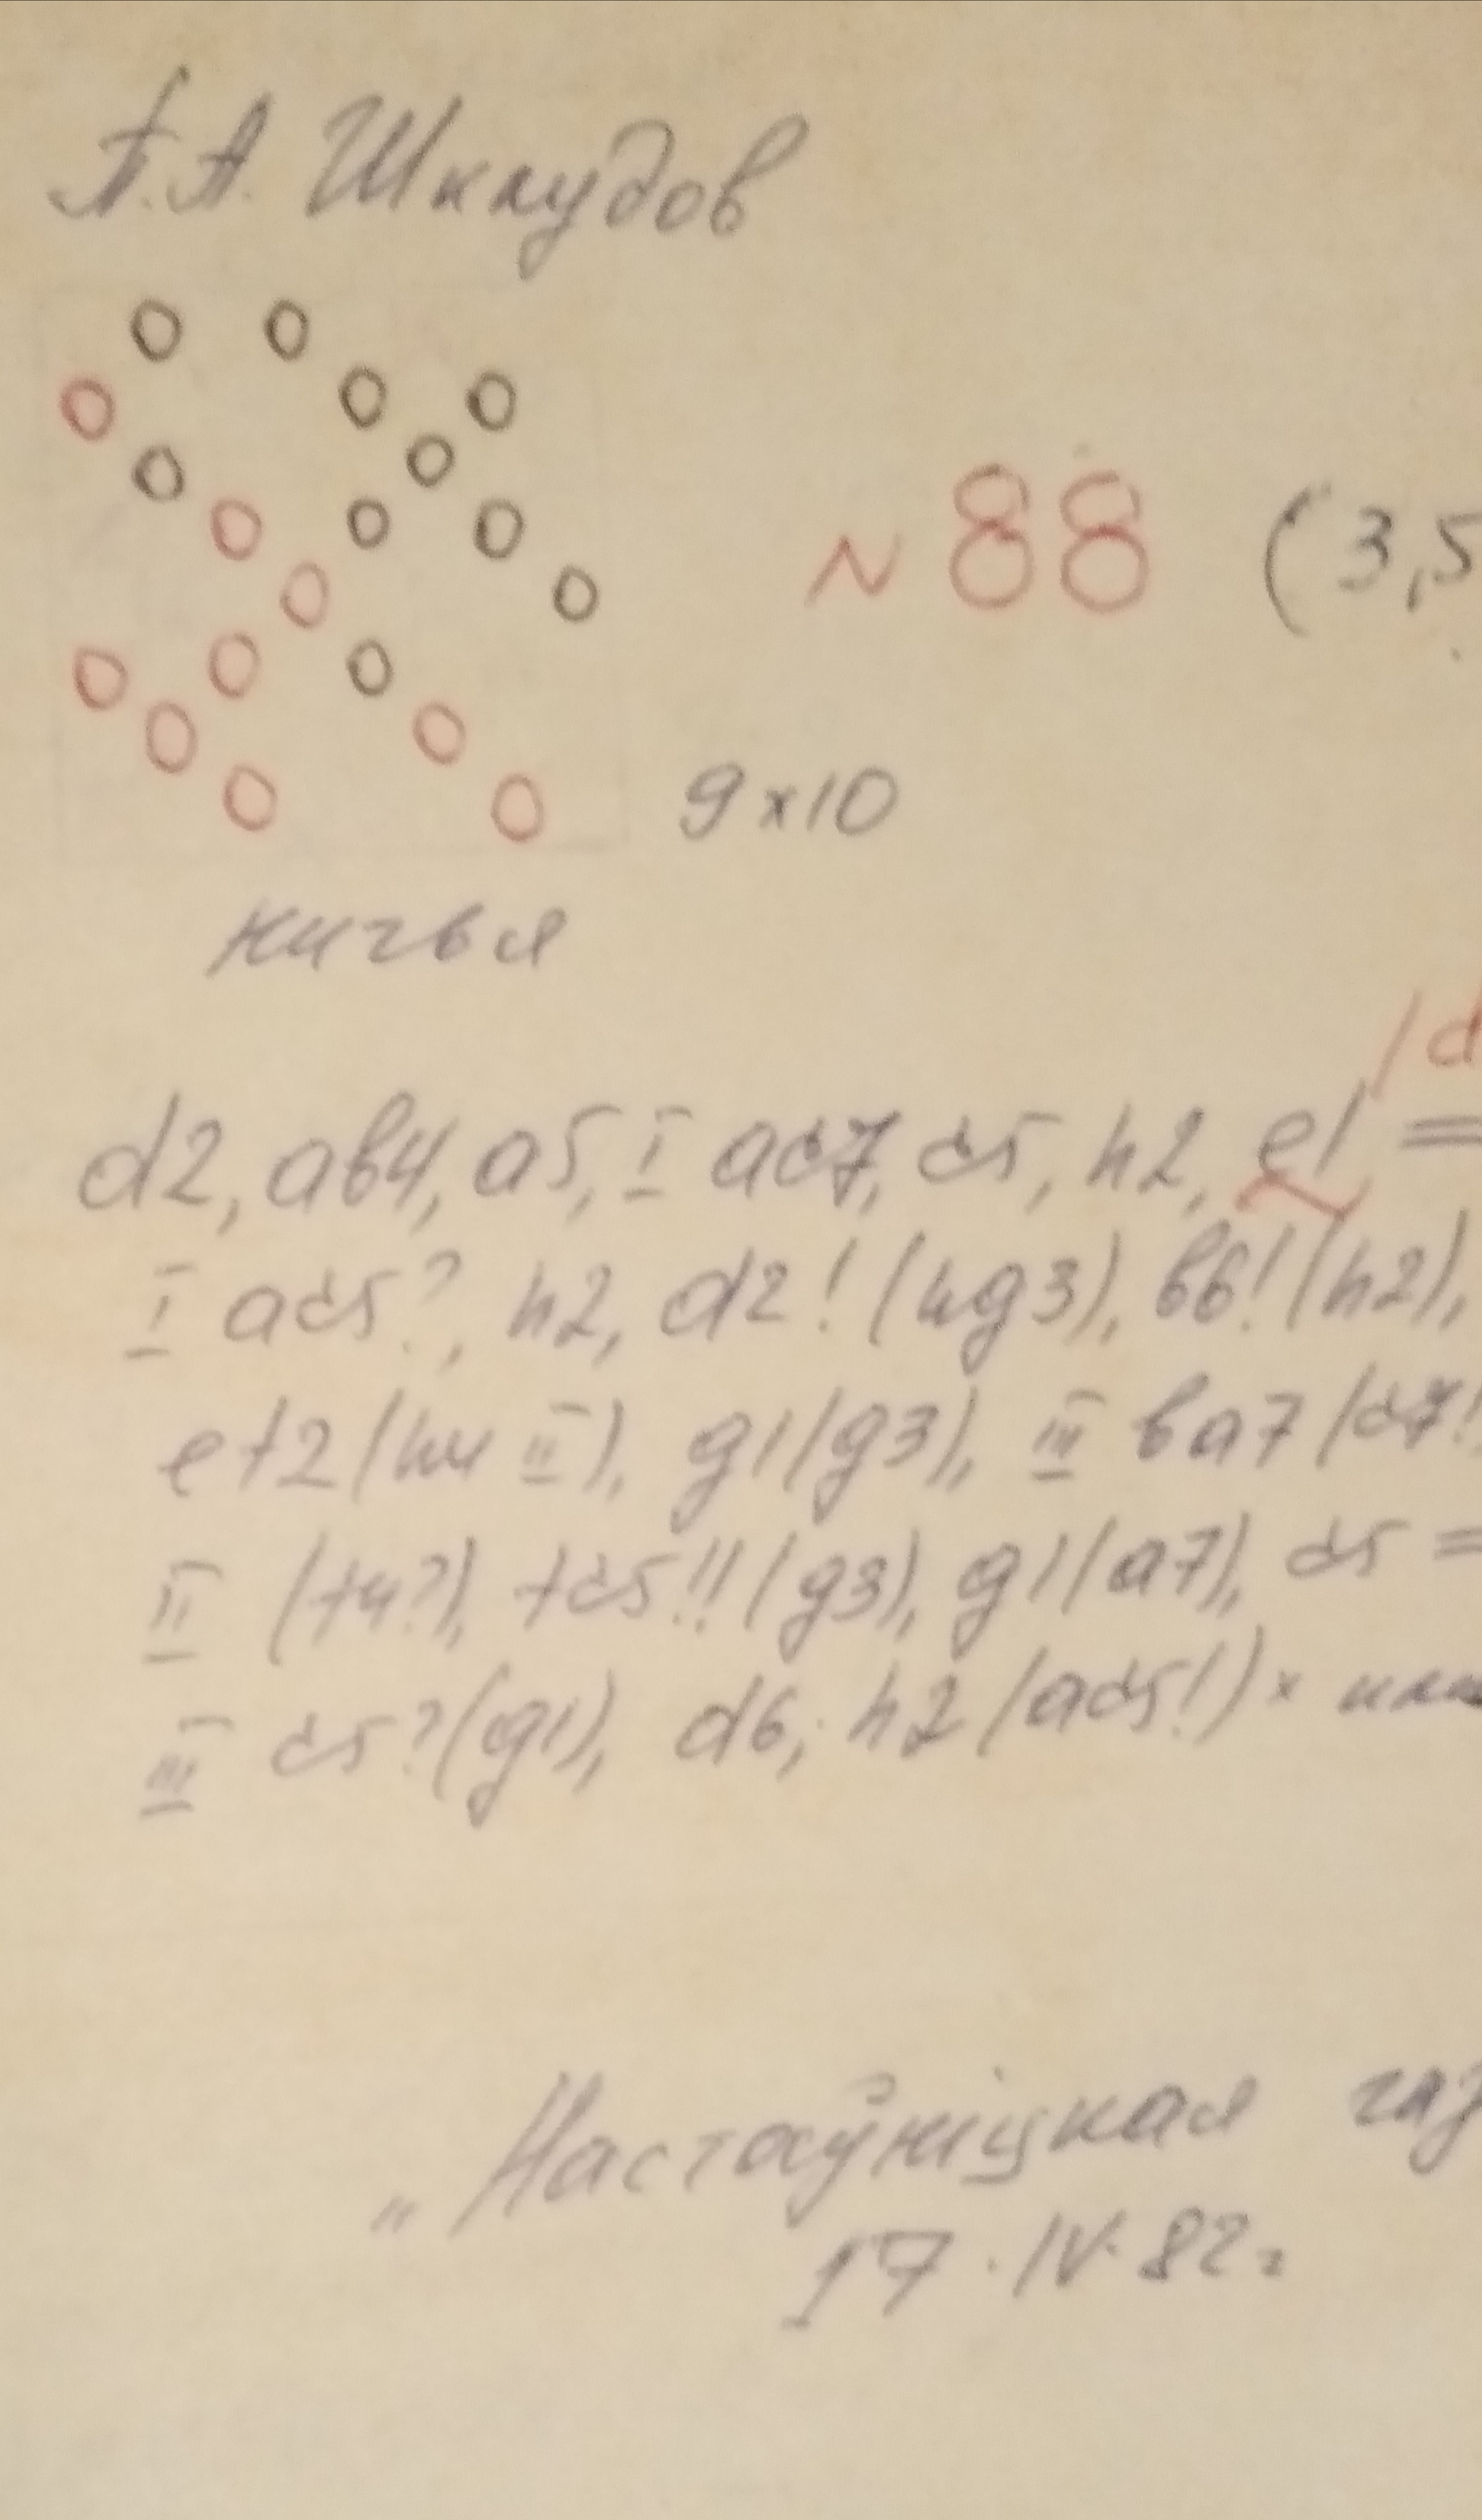 А.А. Шклудов
N 88 (3,5
9x10
ничья
/d
d2, ab4, a5, I ac7, c5, h2, e1 =
I ac5?, h2, d2! (hg3), b6! (h2),
ef2 (h4 II), g1 (g3), III ba7 (c7!
II (f4?), fc5!! (g3), g1 (a7), c5 =
III c5? (g1), d6, h2 (ac5!) x или
„Настаўніцкая газ
17.IV.82г